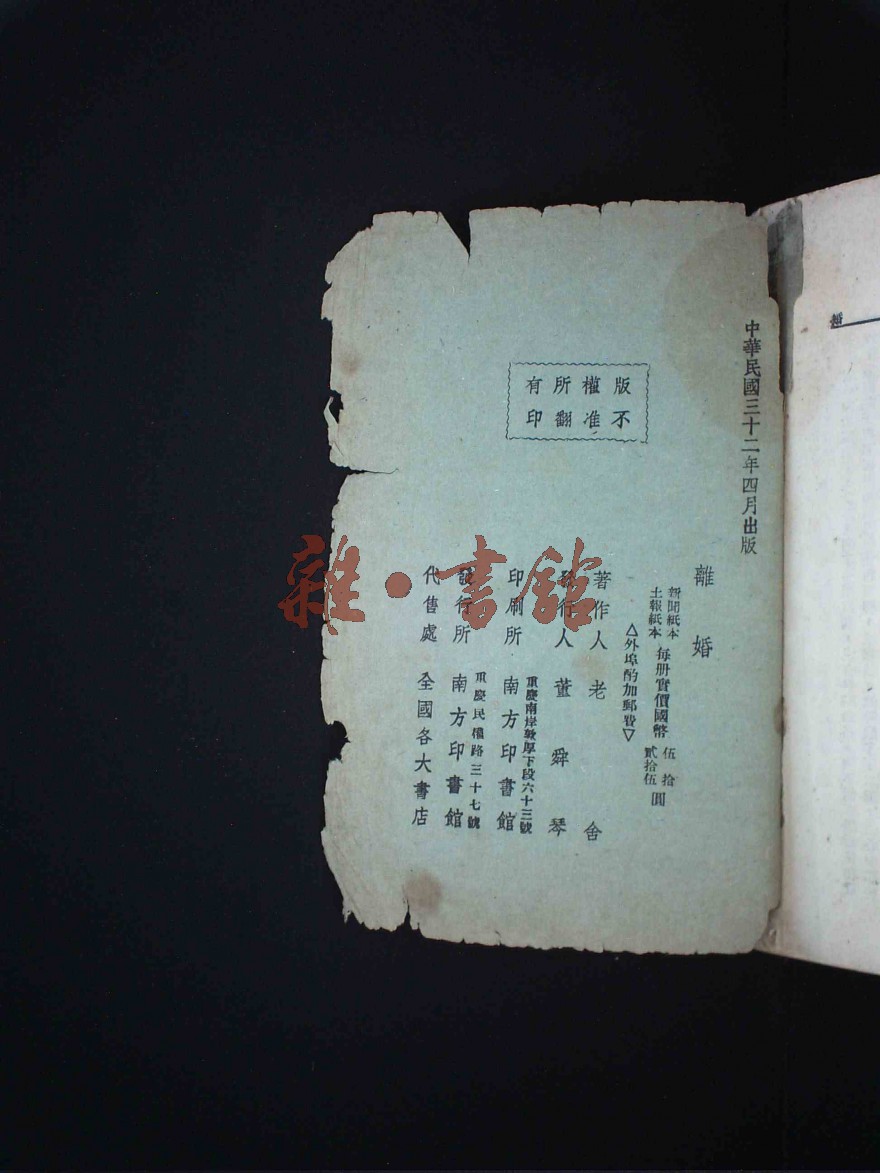 中華民國三十二年四月出版
版權所有
不准翻印
離婚
新聞紙本
土報紙本
每册實價國幣
伍拾
貳拾伍
圓
△外埠酌加郵費▽
著作人 老舍
發行人 董舜琴
重慶南岸敦厚下段六十三號
印刷所 南方印書館
重慶民權路三十七號
發行所 南方印書館
代售處 全國各大書店
雜·書館